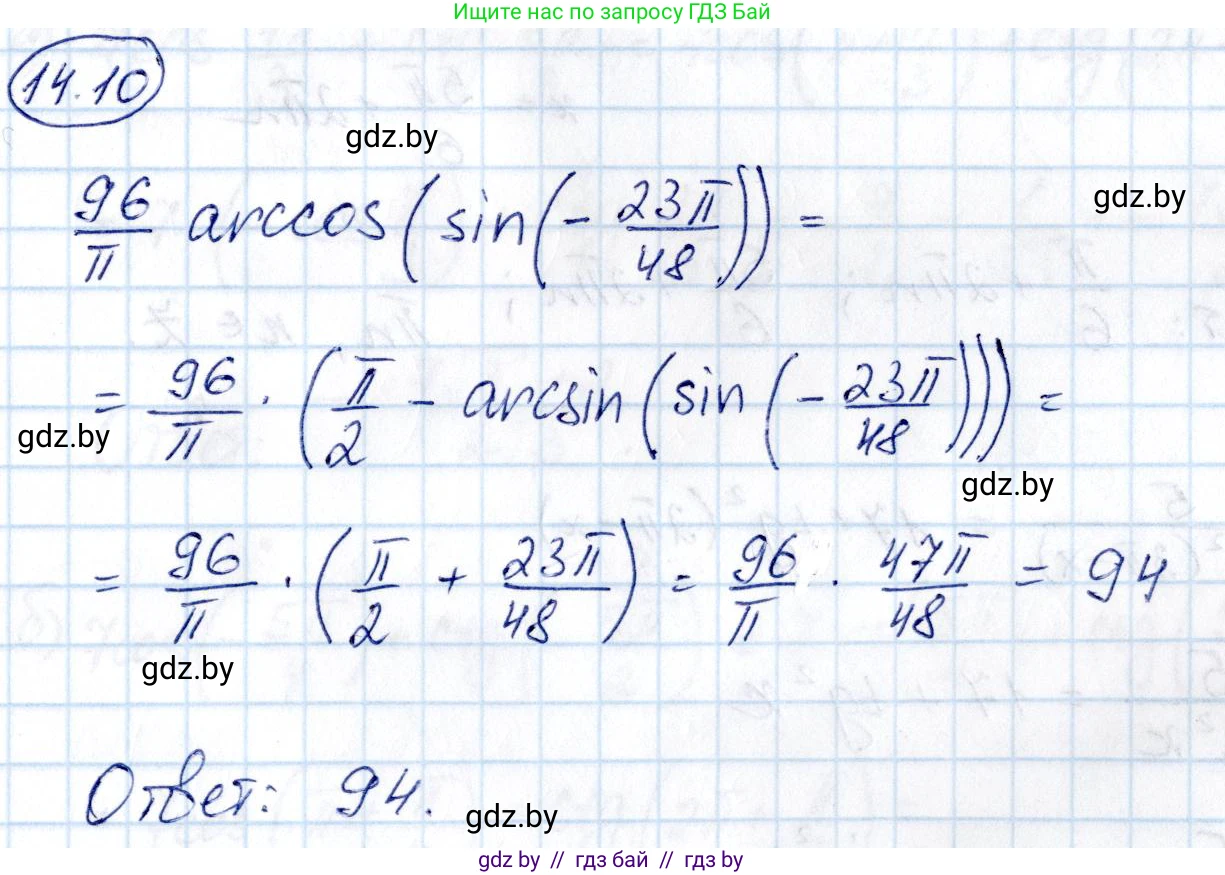 Ищите нас по запросу ГДЗ Бай
14.10
gdz.by
96/π arccos(sin(-23π/48)) =
gdz.by
= 96/π · (π/2 - arcsin(sin(-23π/48))) =
gdz.by
gdz.by
= 96/π · (π/2 + 23π/48) = 96/π · 47π/48 = 94
gdz.by
Ответ: 94.
gdz.by
gdz.by // гдз бай // гдз by